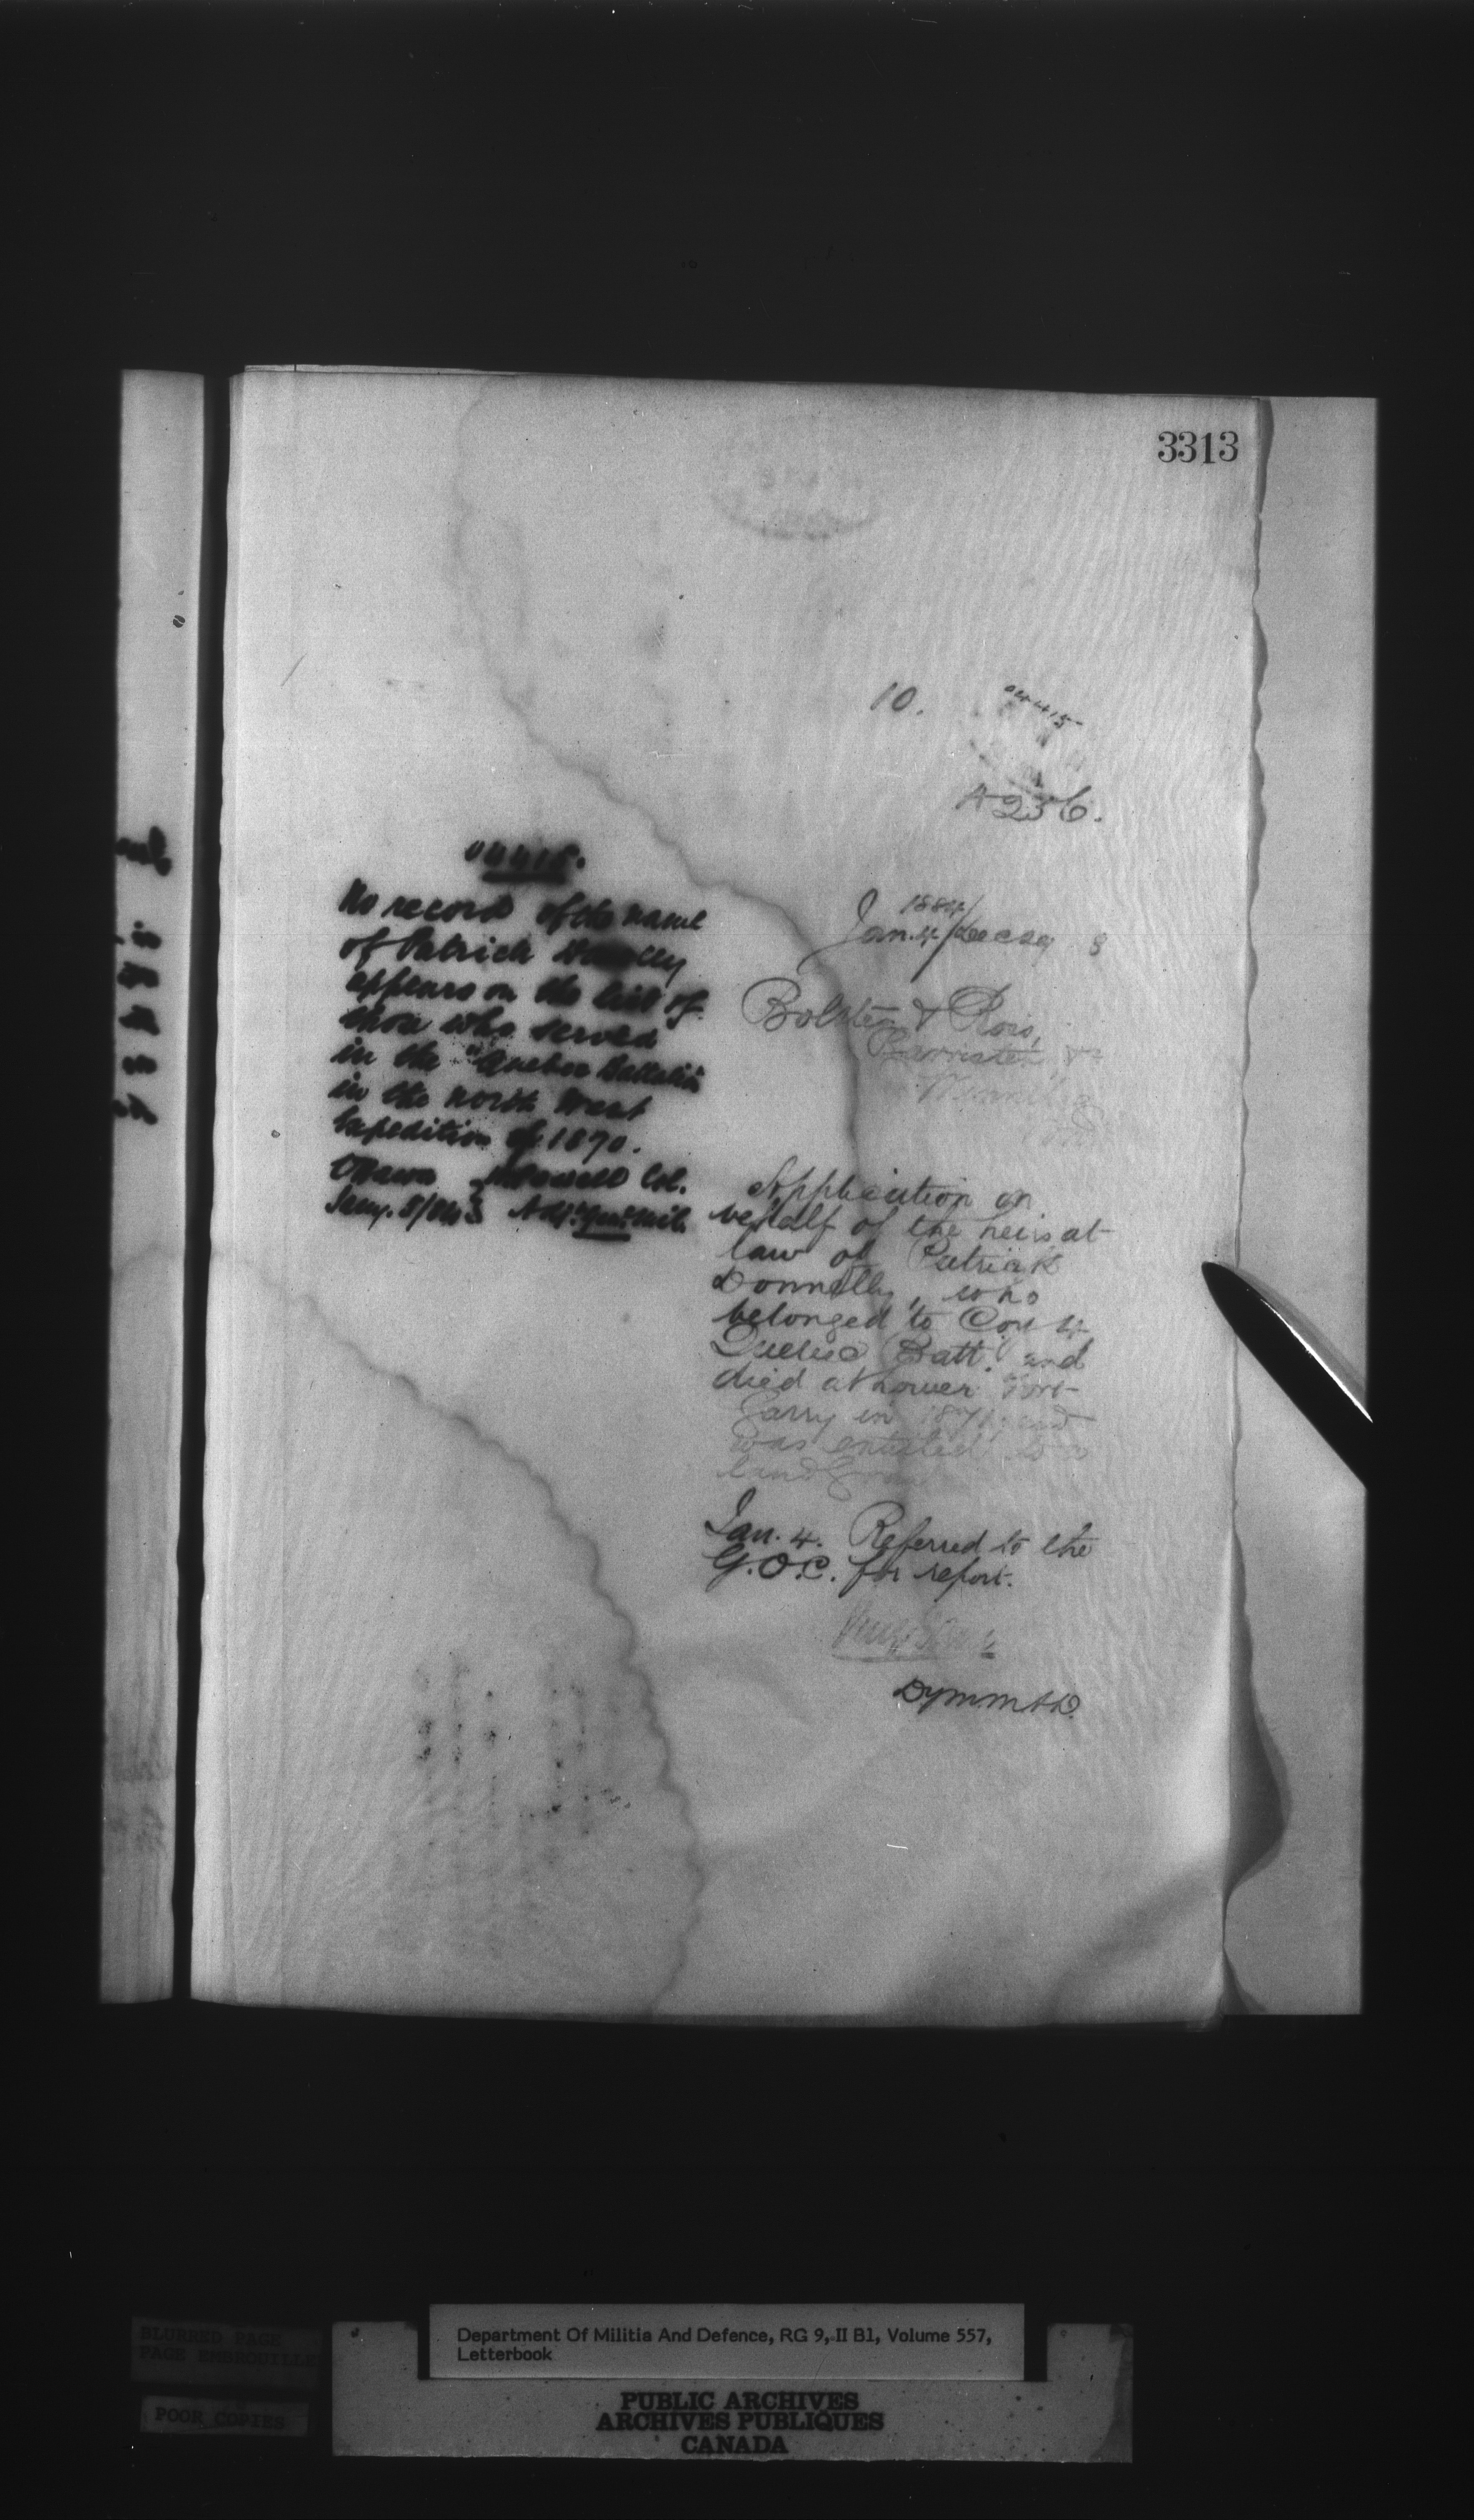 3313
10.
04415
A 256.
04415.
No record of the name
of Patrick Donnelly
appears on the list of
those who served
in the "Quebec Battalion
in the North West
Expedition of 1870.
Ottawa Powell Col.
Jany. 5/84 Adjt. Genl. Mil.
1884/
Jan. 4/
Bolster & Ross,
Barristers
Winnipeg
Application on
behalf of the heirs at
law of Patrick
Donnelly, who
belonged to Coy 4
Quebec Batt. and
died at Lower Fort
Garry in 1871, and
was entitled to a
land Grant
Jan. 4. Referred to the
G.O.C. for report.
DymM&D.
Department Of Militia And Defence, RG 9, II B1, Volume 557,
Letterbook
BLURRED PAGE
PAGE EMBROUILLEE
POOR COPIES
PUBLIC ARCHIVES
ARCHIVES PUBLIQUES
CANADA